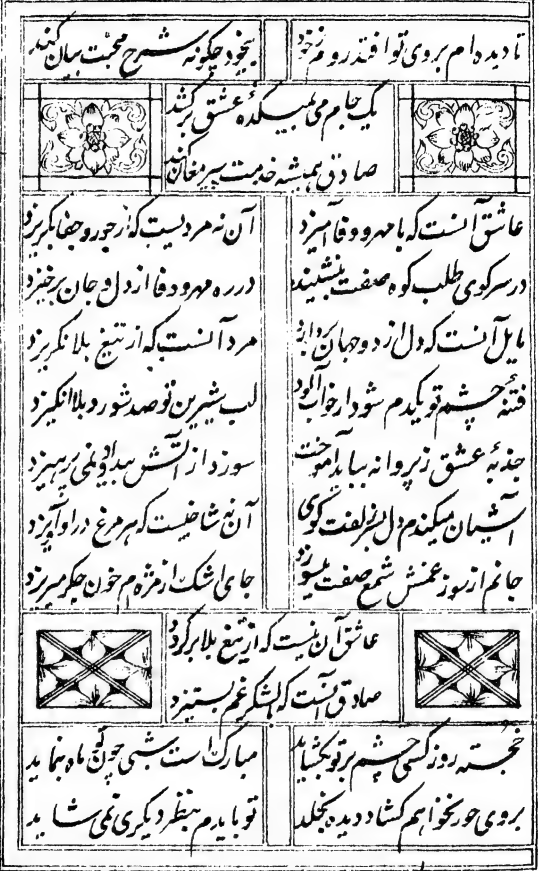 تا دیده ام بروی تو افتد روم زخود
بیخود چگونه شرح محبّت بیان کنند
یک جام می بمیکدهٔ عشق برکشد
صادق همیشه خدمت پیر مغان کند
عاشق آنست که با مهر و وفا آمیزد
آن نه مردیست که از جور و جفا بگریزد
در سر کوی طلب کوه صفت بنشیند
در ره مهر و وفا از دل و جان برخیزد
مایل آنست که دل از دو جهان بردارد
مرد آنست که از تیغ بلا نگریزد
فتنهٔ چشم تو یکدم شود ار خواب آلود
لب شیرین تو صد شور و بلا انگیزد
جذبهٔ عشق ز پروانه بباید آموخت
سوزد از آتش بیداد و نمی پرهیزد
آشیان میکندم دل بسر زلفت گوی
آن نه شاخیست که هر مرغ در او آویزد
جانم از سوز غمش شمع صفت میسوزد
جای اشک از مژه ام خون جگر میریزد
عاشق آن نیست که از تیغ بلا برگردد
صادق آنست که با لشکر غم بستیزد
خجسته روز کسی چشم بر تو بگشاید
مبارک است شبی چون تو ماه بنماید
بروی حور نخواهم گشاد دیده بخلد
تو بایدم بنظر دیگری نمی شاید